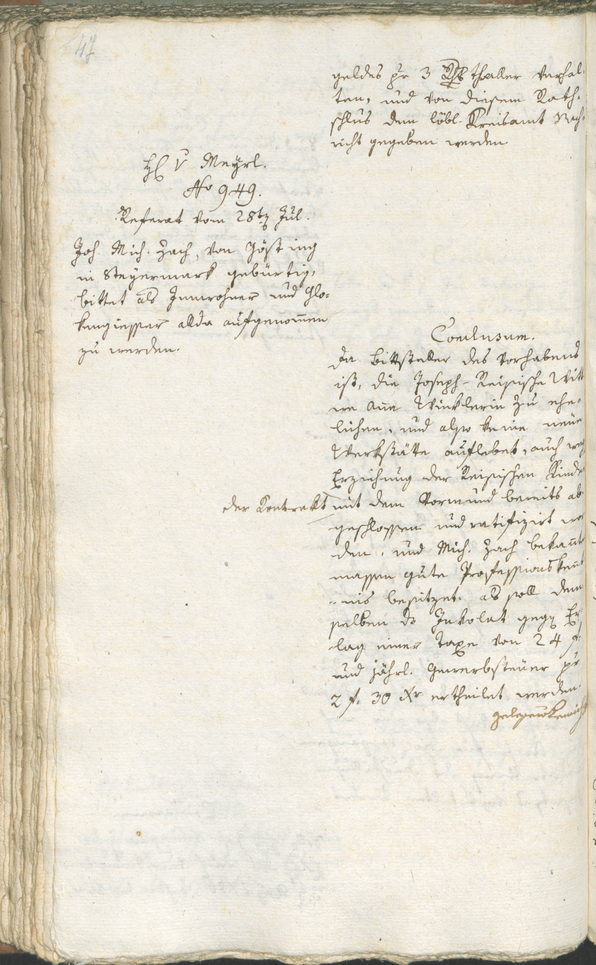 47
geldes pr 3 Rthlr thaller verhal-
ten, und von diesem Rath-
schlus dem löbl. Kreisamt Nach-
richt gegeben werden
H v Meyrl.
No 949.
Referat vom 28ten Jul.
Joh. Mich. Zach, von
in Steyermark gebürtig,
bittet als Innwohner und Glo-
kengiesser allda aufgenommen
zu werden.
Conclusum.
Da Bittsteller des Vorhabens
ist, die Joseph-Reisische Witt
we Anna Winklerin zu ehe-
lichen, und also keine neue
Werkstätte auflebet, auch weg
Erziehung der Reisischen Kinder
der Kontrakt mit dem Vormund bereits ab
geschlossen und ratifizirt wor
den, und Mich. Zach bekannt
massen gute Professionskennt
nis besitzet: als soll dem
selben das Inkolat gegen Er
lag einer Taxe von 24 f.
und jährl. Gewerbsteuer pr
2 f. 30 Xr ertheilet werden